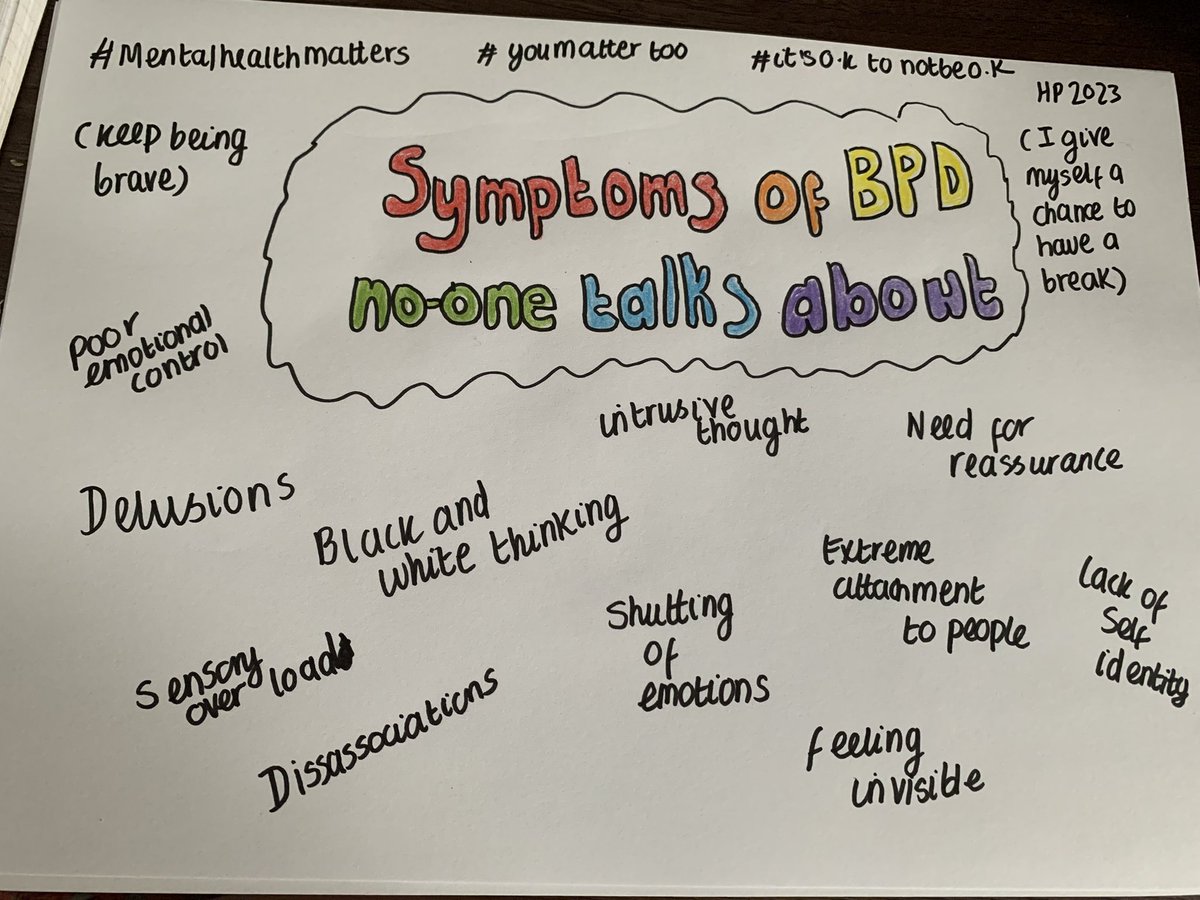 #Mentalhealthmatters
# youmatter too
#it's O.K to notbeO.K
HP 2023
(Keep being
brave)
(I give
myself a
chance to
have a
break)
Symptoms of BPD
no-one talks about
poor
emotional
control
intrusive
thought
Need for
reassurance
Delusions
Black and
white thinking
Extreme
attachment
to people
Lack of
self
identity
Shutting
of
emotions
Sensory
over load
Dissassociations
feeling
invisible